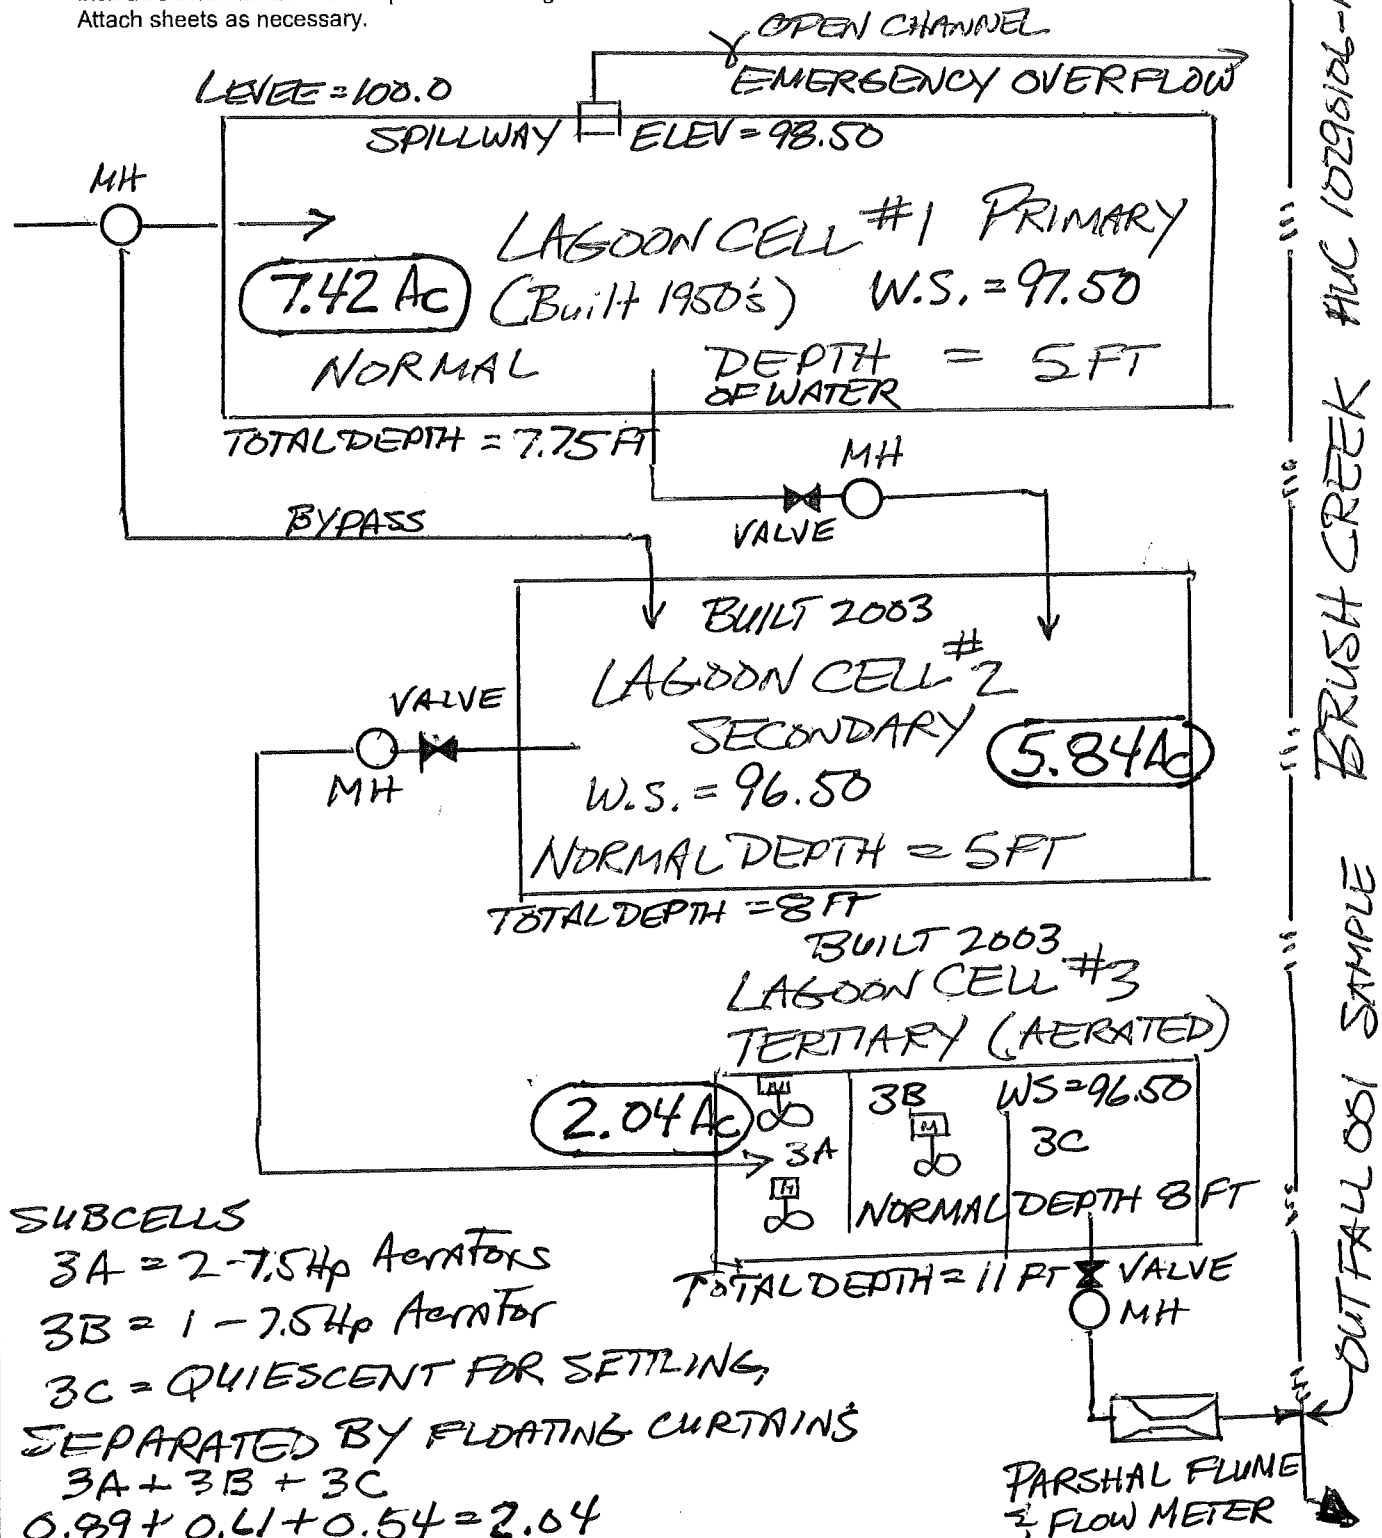 Attach sheets as necessary.
OPEN CHANNEL
EMERGENCY OVERFLOW
LEVEE = 100.0
SPILLWAY ELEV = 98.50
MH
LAGOON CELL #1 PRIMARY
7.42 Ac (Built 1950's) W.S. = 97.50
NORMAL DEPTH OF WATER = 5 FT
TOTAL DEPTH = 7.75 FT
MH
VALVE
BYPASS
BUILT 2003
LAGOON CELL #2
SECONDARY
5.84 Ac
W.S. = 96.50
NORMAL DEPTH = 5 FT
TOTAL DEPTH = 8 FT
VALVE
MH
BUILT 2003
LAGOON CELL #3
TERTIARY (AERATED)
2.04 Ac
M
3A
M
3B
M
WS = 96.50
3C
NORMAL DEPTH 8 FT
TOTAL DEPTH = 11 FT
VALVE
MH
SUBCELLS
3A = 2-7.5Hp AerATors
3B = 1 - 7.5Hp AerATor
3C = QUIESCENT FOR SETTLING,
SEPARATED BY FLOATING CURTAINS
3A + 3B + 3C
0.89 + 0.61 + 0.54 = 2.04
PARSHAL FLUME
& FLOW METER
OUTFALL 001 SAMPLE
BRUSH CREEK HUC 10290106-